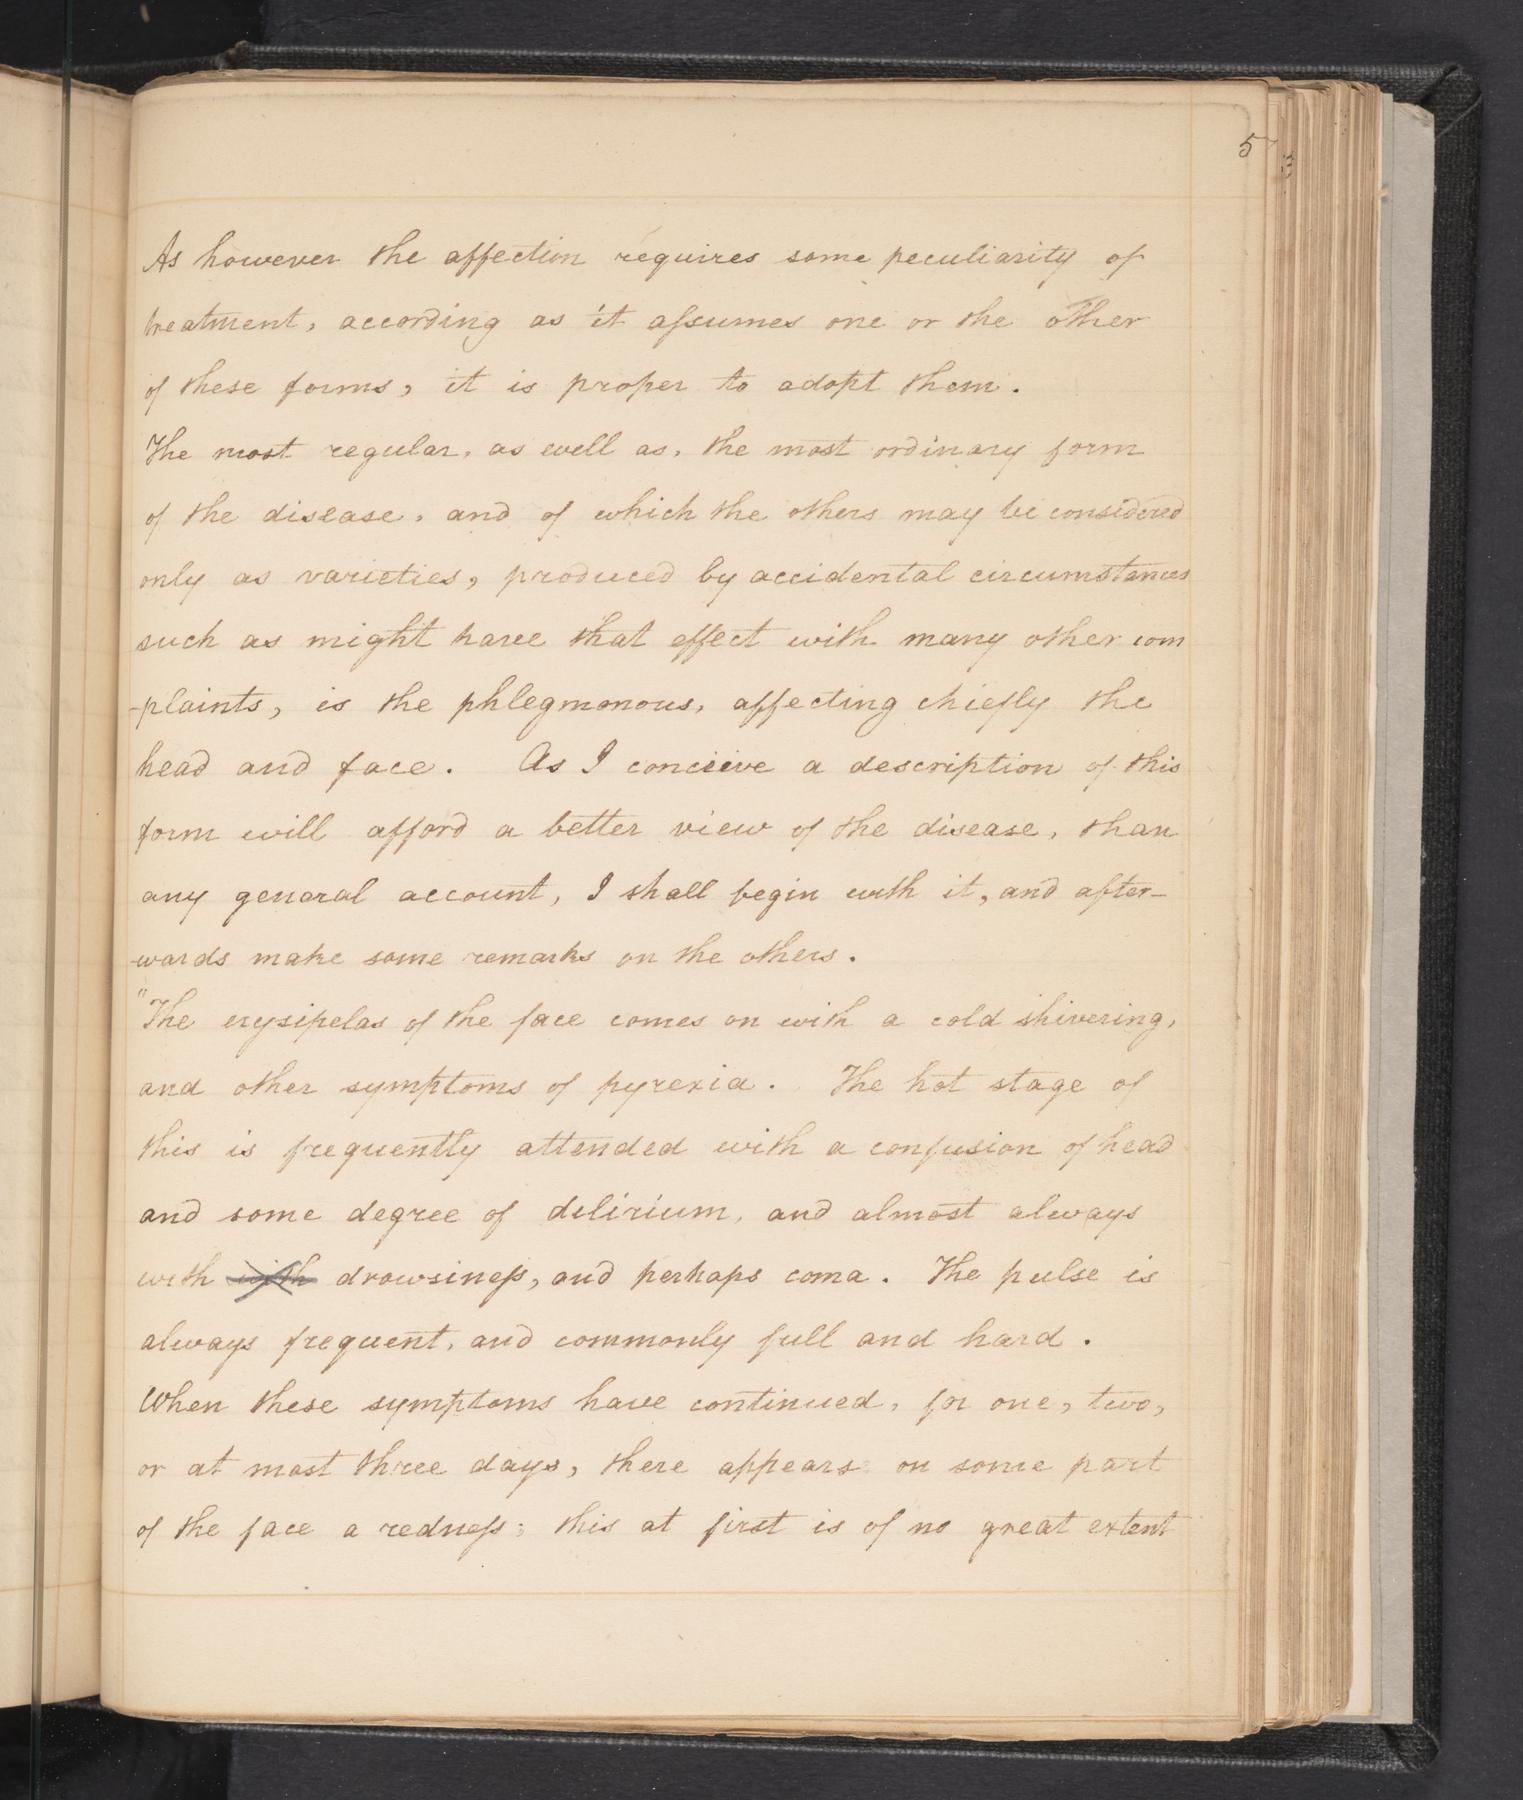 5
As however the affection requires some peculiarity of
treatment, according as it assumes one or the other
of these forms, it is proper to adopt them.
The most regular, as well as, the most ordinary form
of the disease, and of which the others may be considered
only as varieties, produced by accidental circumstances
such as might have that effect with many other com
-plaints, is the phlegmonous, affecting chiefly the
head and face. As I concieive a description of this
form will afford a better view of the disease, than
any general account, I shall begin with it, and after-
-wards make some remarks on the others.
"The erysipelas of the face comes on with a cold shivering,
and other symptoms of pyrexia. The hot stage of
this is frequently attended with a confusion of head
and some degree of delirium, and almost always
with with drowsiness, and perhaps coma. The pulse is
always frequent, and commonly full and hard.
When these symptoms have continued, for one, two,
or at most three days, there appears on some part
of the face a redness; this at first is of no great extent